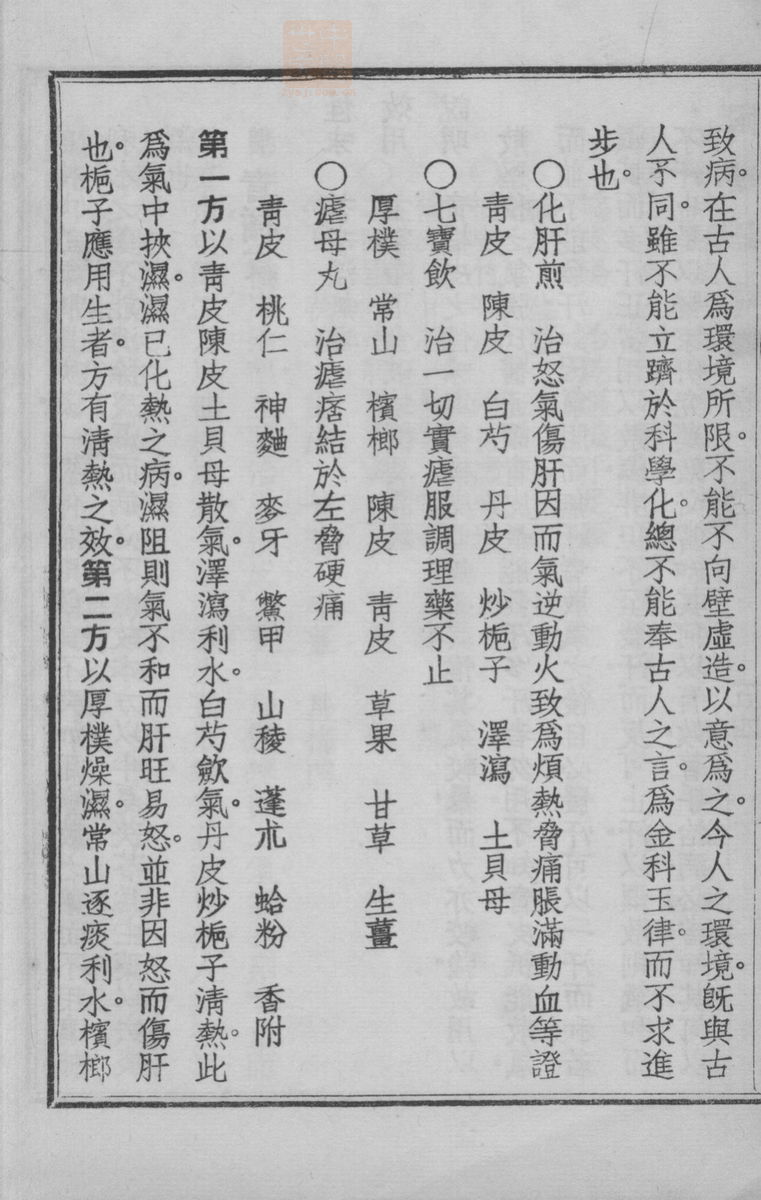 致病。在古人爲環境所限。不能不向壁虛造。以意爲之。今人之環境。既與古
人不同。雖不能立躋於科學化。總不能奉古人之言。爲金科玉律。而不求進
步也。
〇化肝煎　治怒氣傷肝因而氣逆動火致爲煩熱脅痛脹滿動血等證
靑皮　陳皮　白芍　丹皮　炒梔子　澤瀉　土貝母
〇七寶飮　治一切實瘧服調理藥不止
厚樸　常山　檳榔　陳皮　靑皮　草果　甘草　生薑
〇瘧母丸　治瘧痞結於左脅硬痛
靑皮　桃仁　神麯　麥牙　鱉甲　山稜　蓬朮　蛤粉　香附
第一方以靑皮陳皮土貝母散氣。澤瀉利水。白芍歛氣。丹皮炒梔子淸熱。此
爲氣中挾濕。濕已化熱之病。濕阻則氣不和而肝旺易怒。並非因怒而傷肝
也。梔子應用生者。方有淸熱之效。第二方以厚樸燥濕。常山逐痰利水。檳榔